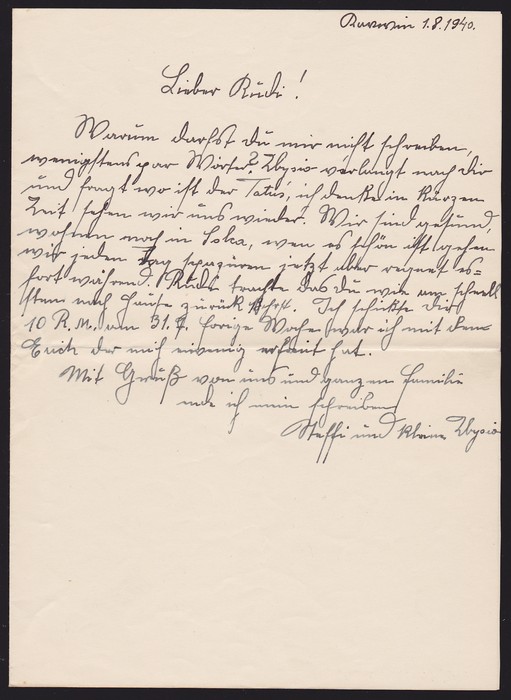 1.8.1940.
Lieber Rudi!
Warum darfst du mir nicht schreiben,
wenigstens par Worte? Zbysio verlangt nach dir
und fragt wo ist der Tatuś, ich denke in kurzen
Zeit sehen wir uns wieder. Wir sind gesund,
wohnen noch in , wen es schön ist gehen
wir jeden Tag spazüren jetzt aber regnet es=
fort während. Rudi trachte das du wie am schnell
stens nach Hause zurück . Ich schikte dir
10 R.M. am 31.7. forige Woche war ich mit dem
der mich eiwenig erfreit hat.
Mit Gruß von uns und ganzen Familie
ende ich mein schreiben
Steffi und kleine Zbysio